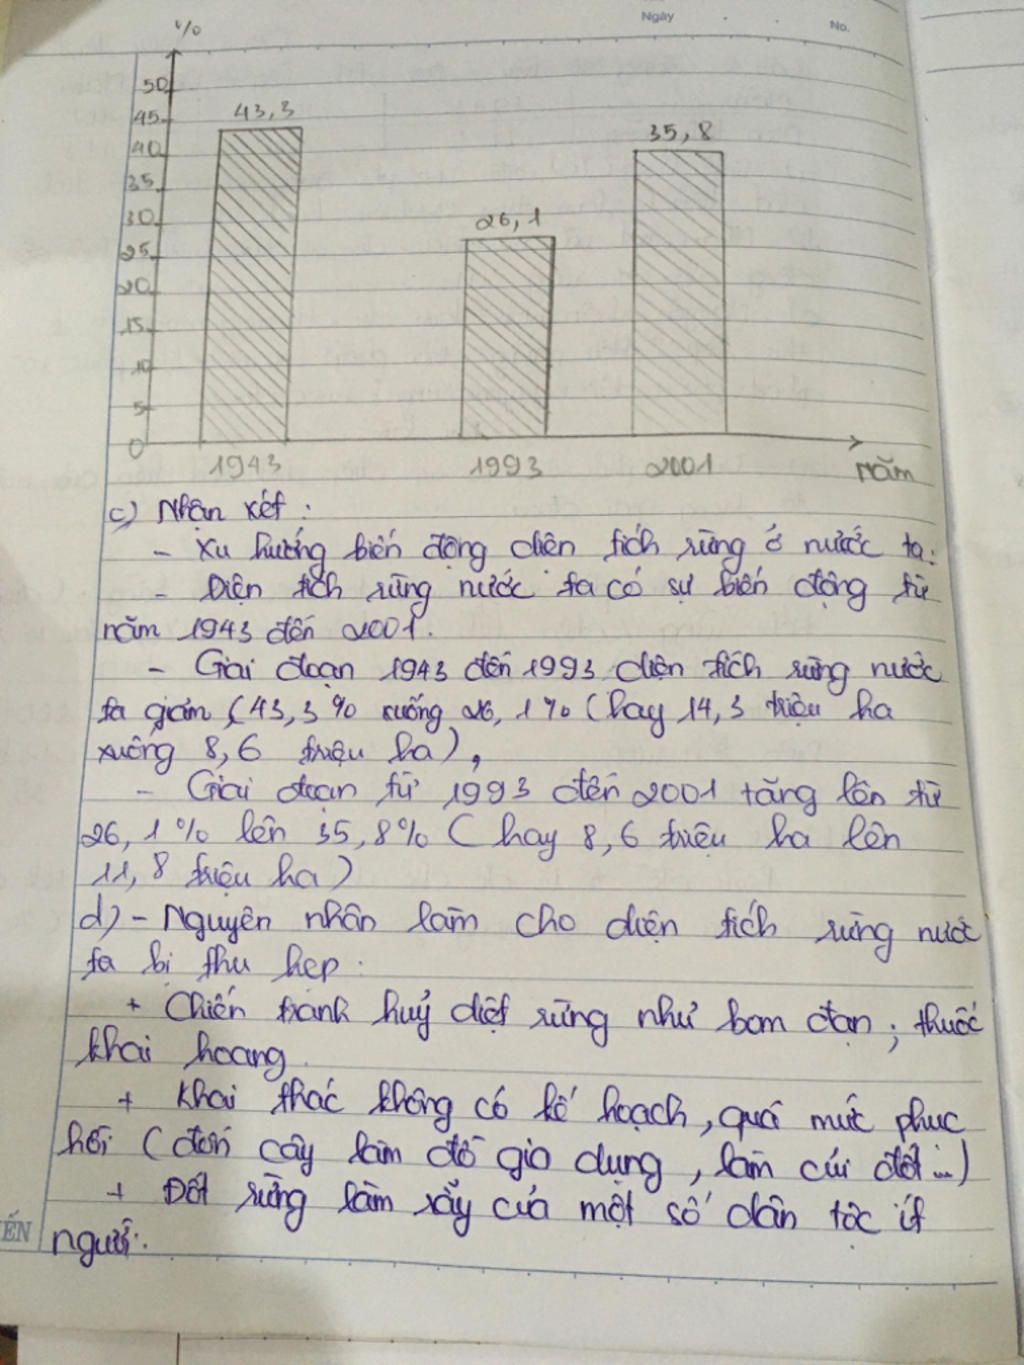 Ngày
No.
%
50
45
40
35
30
25
20
15
10
5
0
43,3
26,1
35,8
1943 1993 2001 năm
c) Nhận xét :
- Xu hướng biến động diện tích rừng ở nước ta:
- Diện tích rừng nước ta có sự biến động từ
năm 1943 đến 2001.
- Giai đoạn 1943 đến 1993 diện tích rừng nước
ta giảm (43,3% xuống 26,1% (hay 14,3 triệu ha
xuống 8,6 triệu ha),
- Giai đoạn từ 1993 đến 2001 tăng lên từ
26,1% lên 35,8% (hay 8,6 triệu ha lên
11,8 triệu ha)
d) - Nguyên nhân làm cho diện tích rừng nước
ta bị thu hẹp :
+ Chiến tranh huỷ diệt rừng như bom đạn ; thuốc
khai hoang.
+ Khai thác không có kế hoạch, quá mức phục
hồi (đốn cây làm đồ gia dụng, làm củi đốt...)
+ Đốt rừng làm rẫy của một số dân tộc ít
người.
ẾN